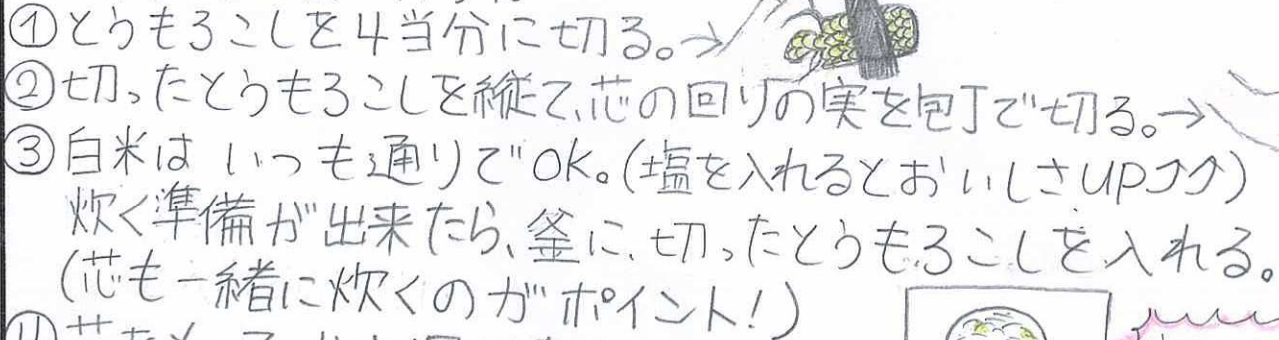 ①とうもろこしを4当分に切る。→
②切ったとうもろこしを縦て、芯の回りの実を包丁で切る。→
③白米はいつも通りでOK。(塩を入れるとおいしさUP⤴⤴)
炊く準備が出来たら、釜に、切ったとうもろこしを入れる。
(芯も一緒に炊くのがポイント!)